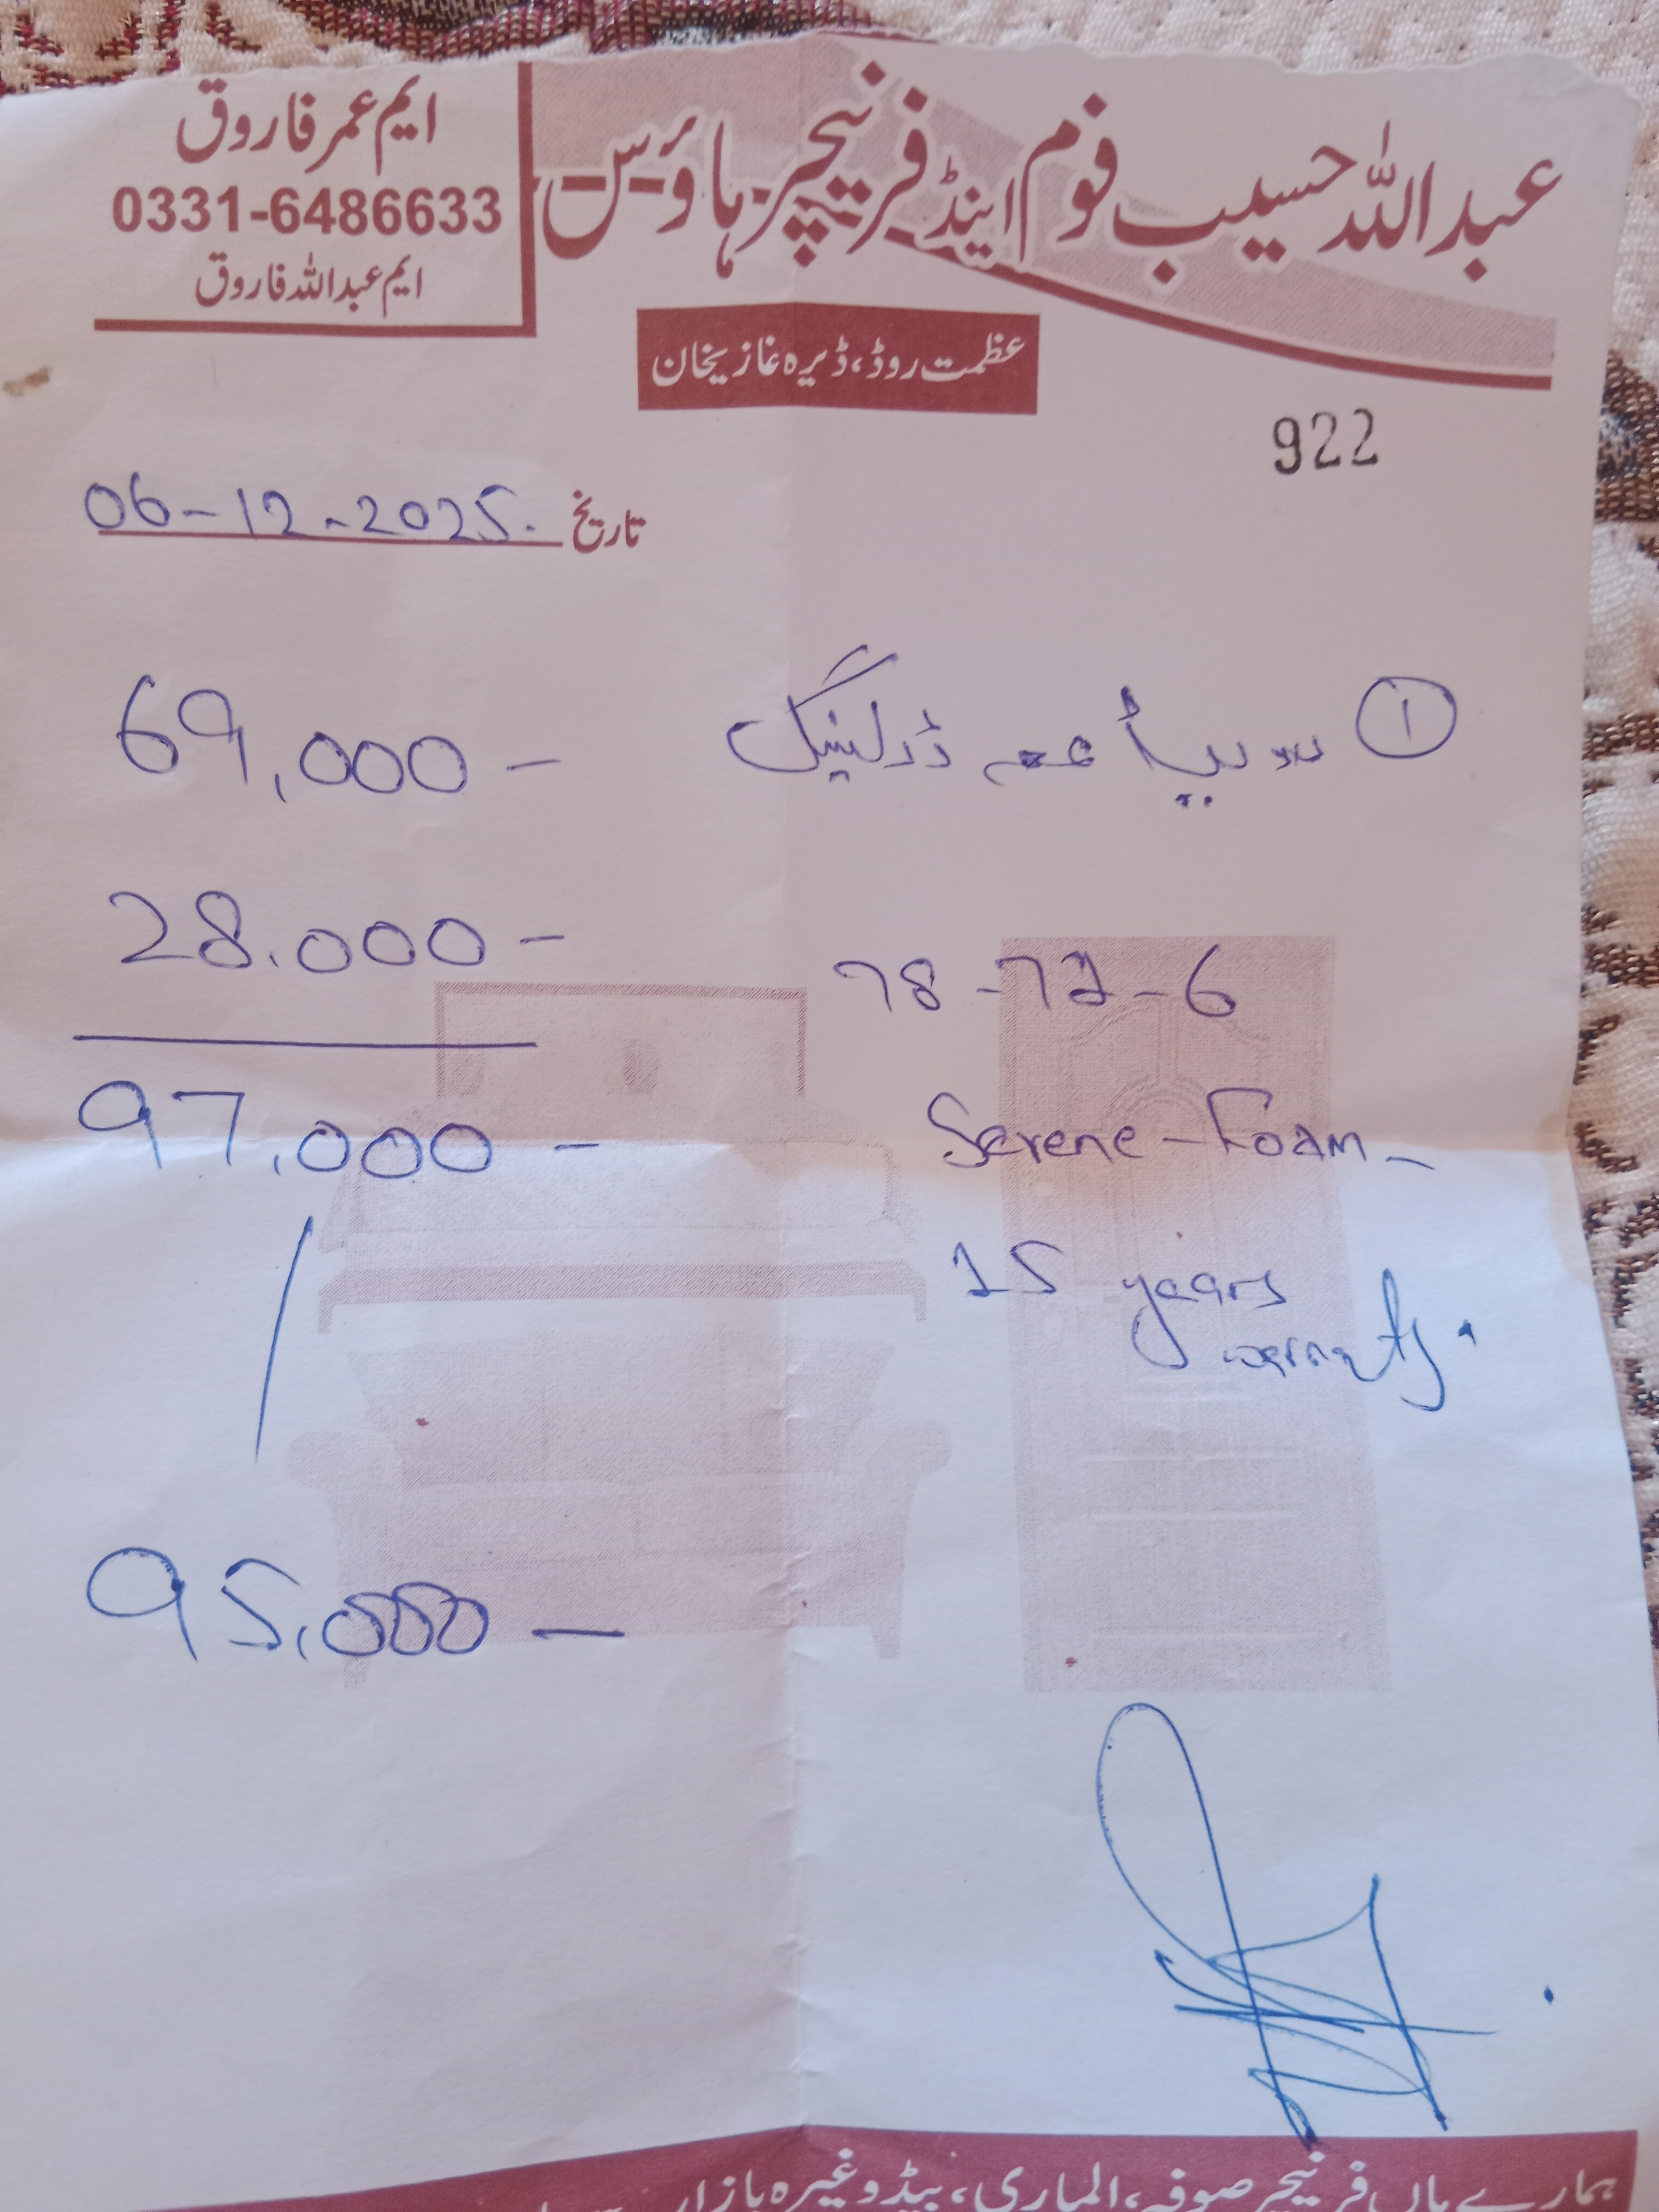 عبداللہ حسیب فوم اینڈ فرنیچر ہاؤس
ایم عمر فاروق
0331-6486633
ایم عبداللہ فاروق
عظمت روڈ، ڈیرہ غازیخان
922
تاریخ 06-12-2025.
① 69,000 -
28.000 -
78-72-6
97,000 -
Serene - Foam -
15 years
95,000 -
ہمارے ہاں فرنیچر صوفہ، الماری، بیڈ وغیرہ بازار